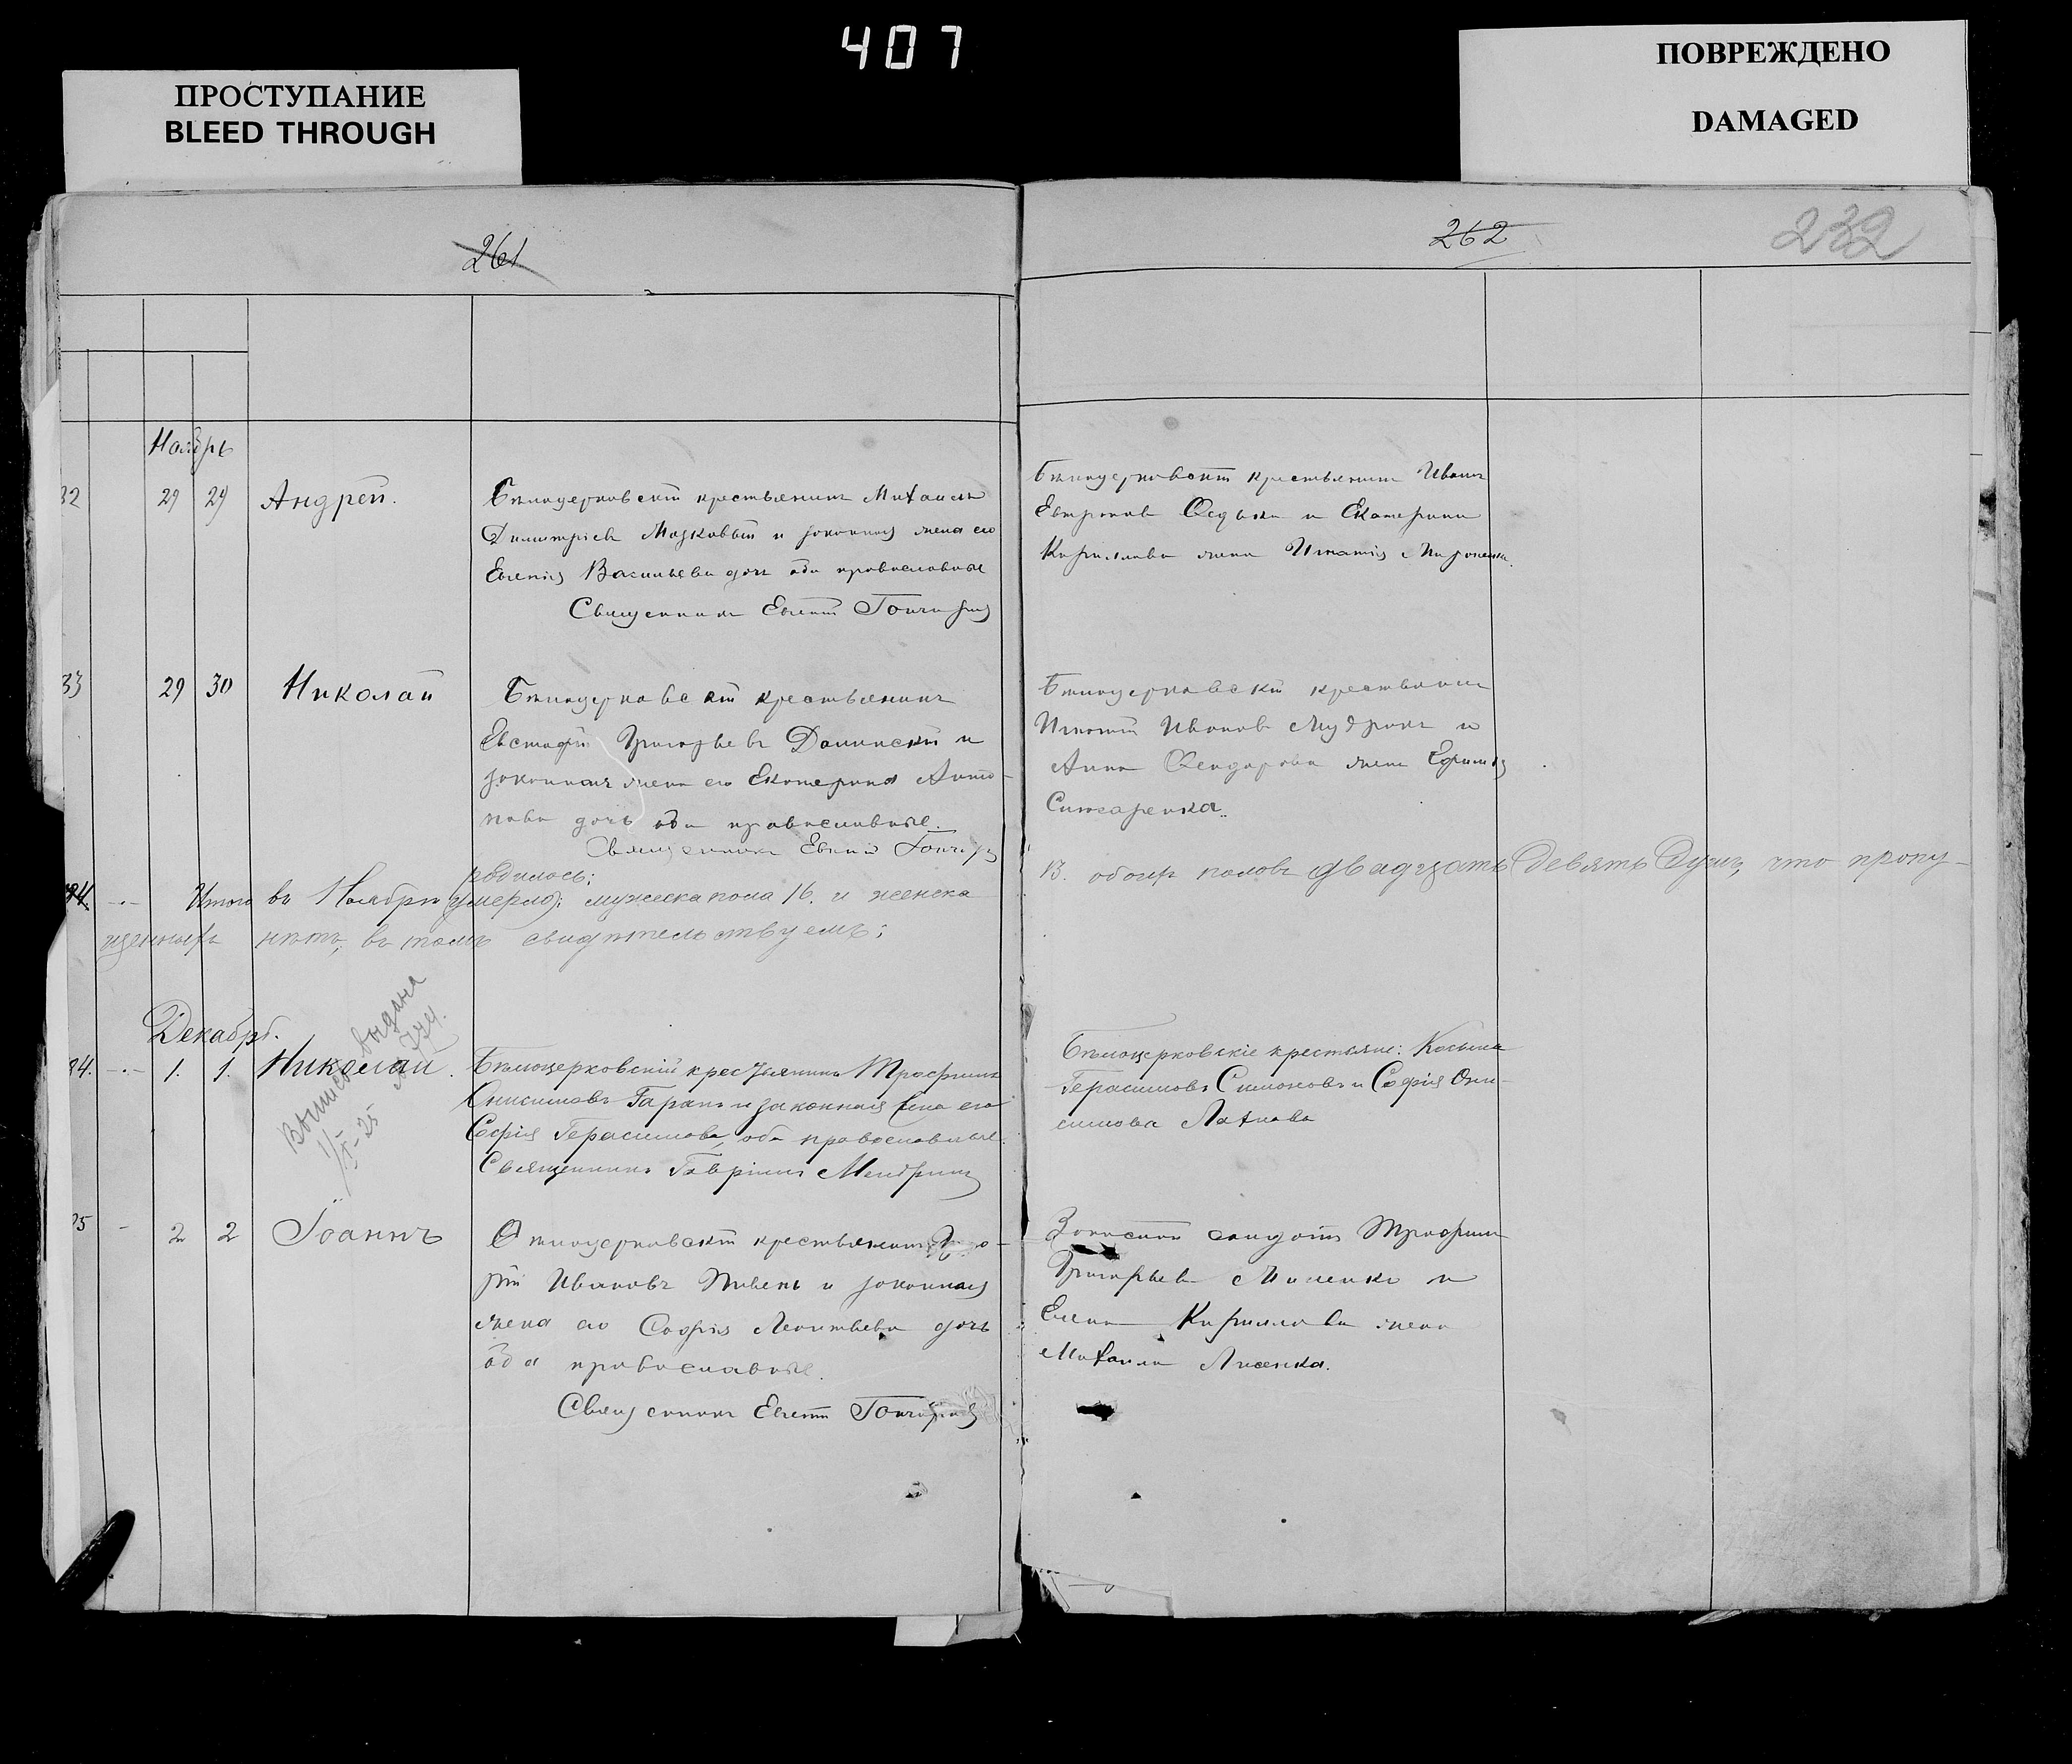 407
ПРОСТУПАНИЕ
BLEED THROUGH
ПОВРЕЖДЕНО
DAMAGED
261
262
232
Ноябрь
32 29 29 Андрей.
Бѣлоцерковскій крестьянинъ Михаилъ
Димитріевъ Мазковый и законная жена его
Евгенія Васильева дочь оба православные
Священникъ Евгеній Гончаровъ
Бѣлоцерковскій крестьянинъ Иванъ
и Екатерина
Кириллова жена Игнатія Мироненка.
33 29 30 Николай
Бѣлоцерковскій крестьянинъ
Евстафій Григорьевъ Долинскій и
законная жена его Екатерина Анто-
нова дочь оба православные.
Священникъ Евгеній
Бѣлоцерковскій крестьянинъ
Игнатій Ивановъ Мудракъ и
Анна жена Ефимія
Слюсаренка.
родилось:
Итого въ Ноябрѣ (умерло): мужеска пола 16. и женска
13. обоихъ половъ двадцать девять душъ, что пропу-
щенныхъ нѣтъ, въ томъ свидѣтельствуемъ:
Декабрь.
Выпись выдана
84. -.- 1. 1. Николай.
Бѣлоцерковскій крестьянинъ Трофимъ
Онисимовъ Гаранъ и законная жена его
Софія Герасимова, оба православные.
Священникъ Гавріилъ Мендринъ
Бѣлоцерковскіе крестьяне: Косьма
Герасимовъ Симоновъ и Софія Они-
симова
85 - 2 2 Іоаннъ
Бѣлоцерковскій крестьянинъ
рій Ивановъ Пивень и законная
жена его Софія Леонтьева дочь
оба православные.
Священникъ Евгеній Гончаровъ
Запасной солдатъ Трофимъ
Григорьевъ и
Елена Кириллова жена
Михаила Лисенка.